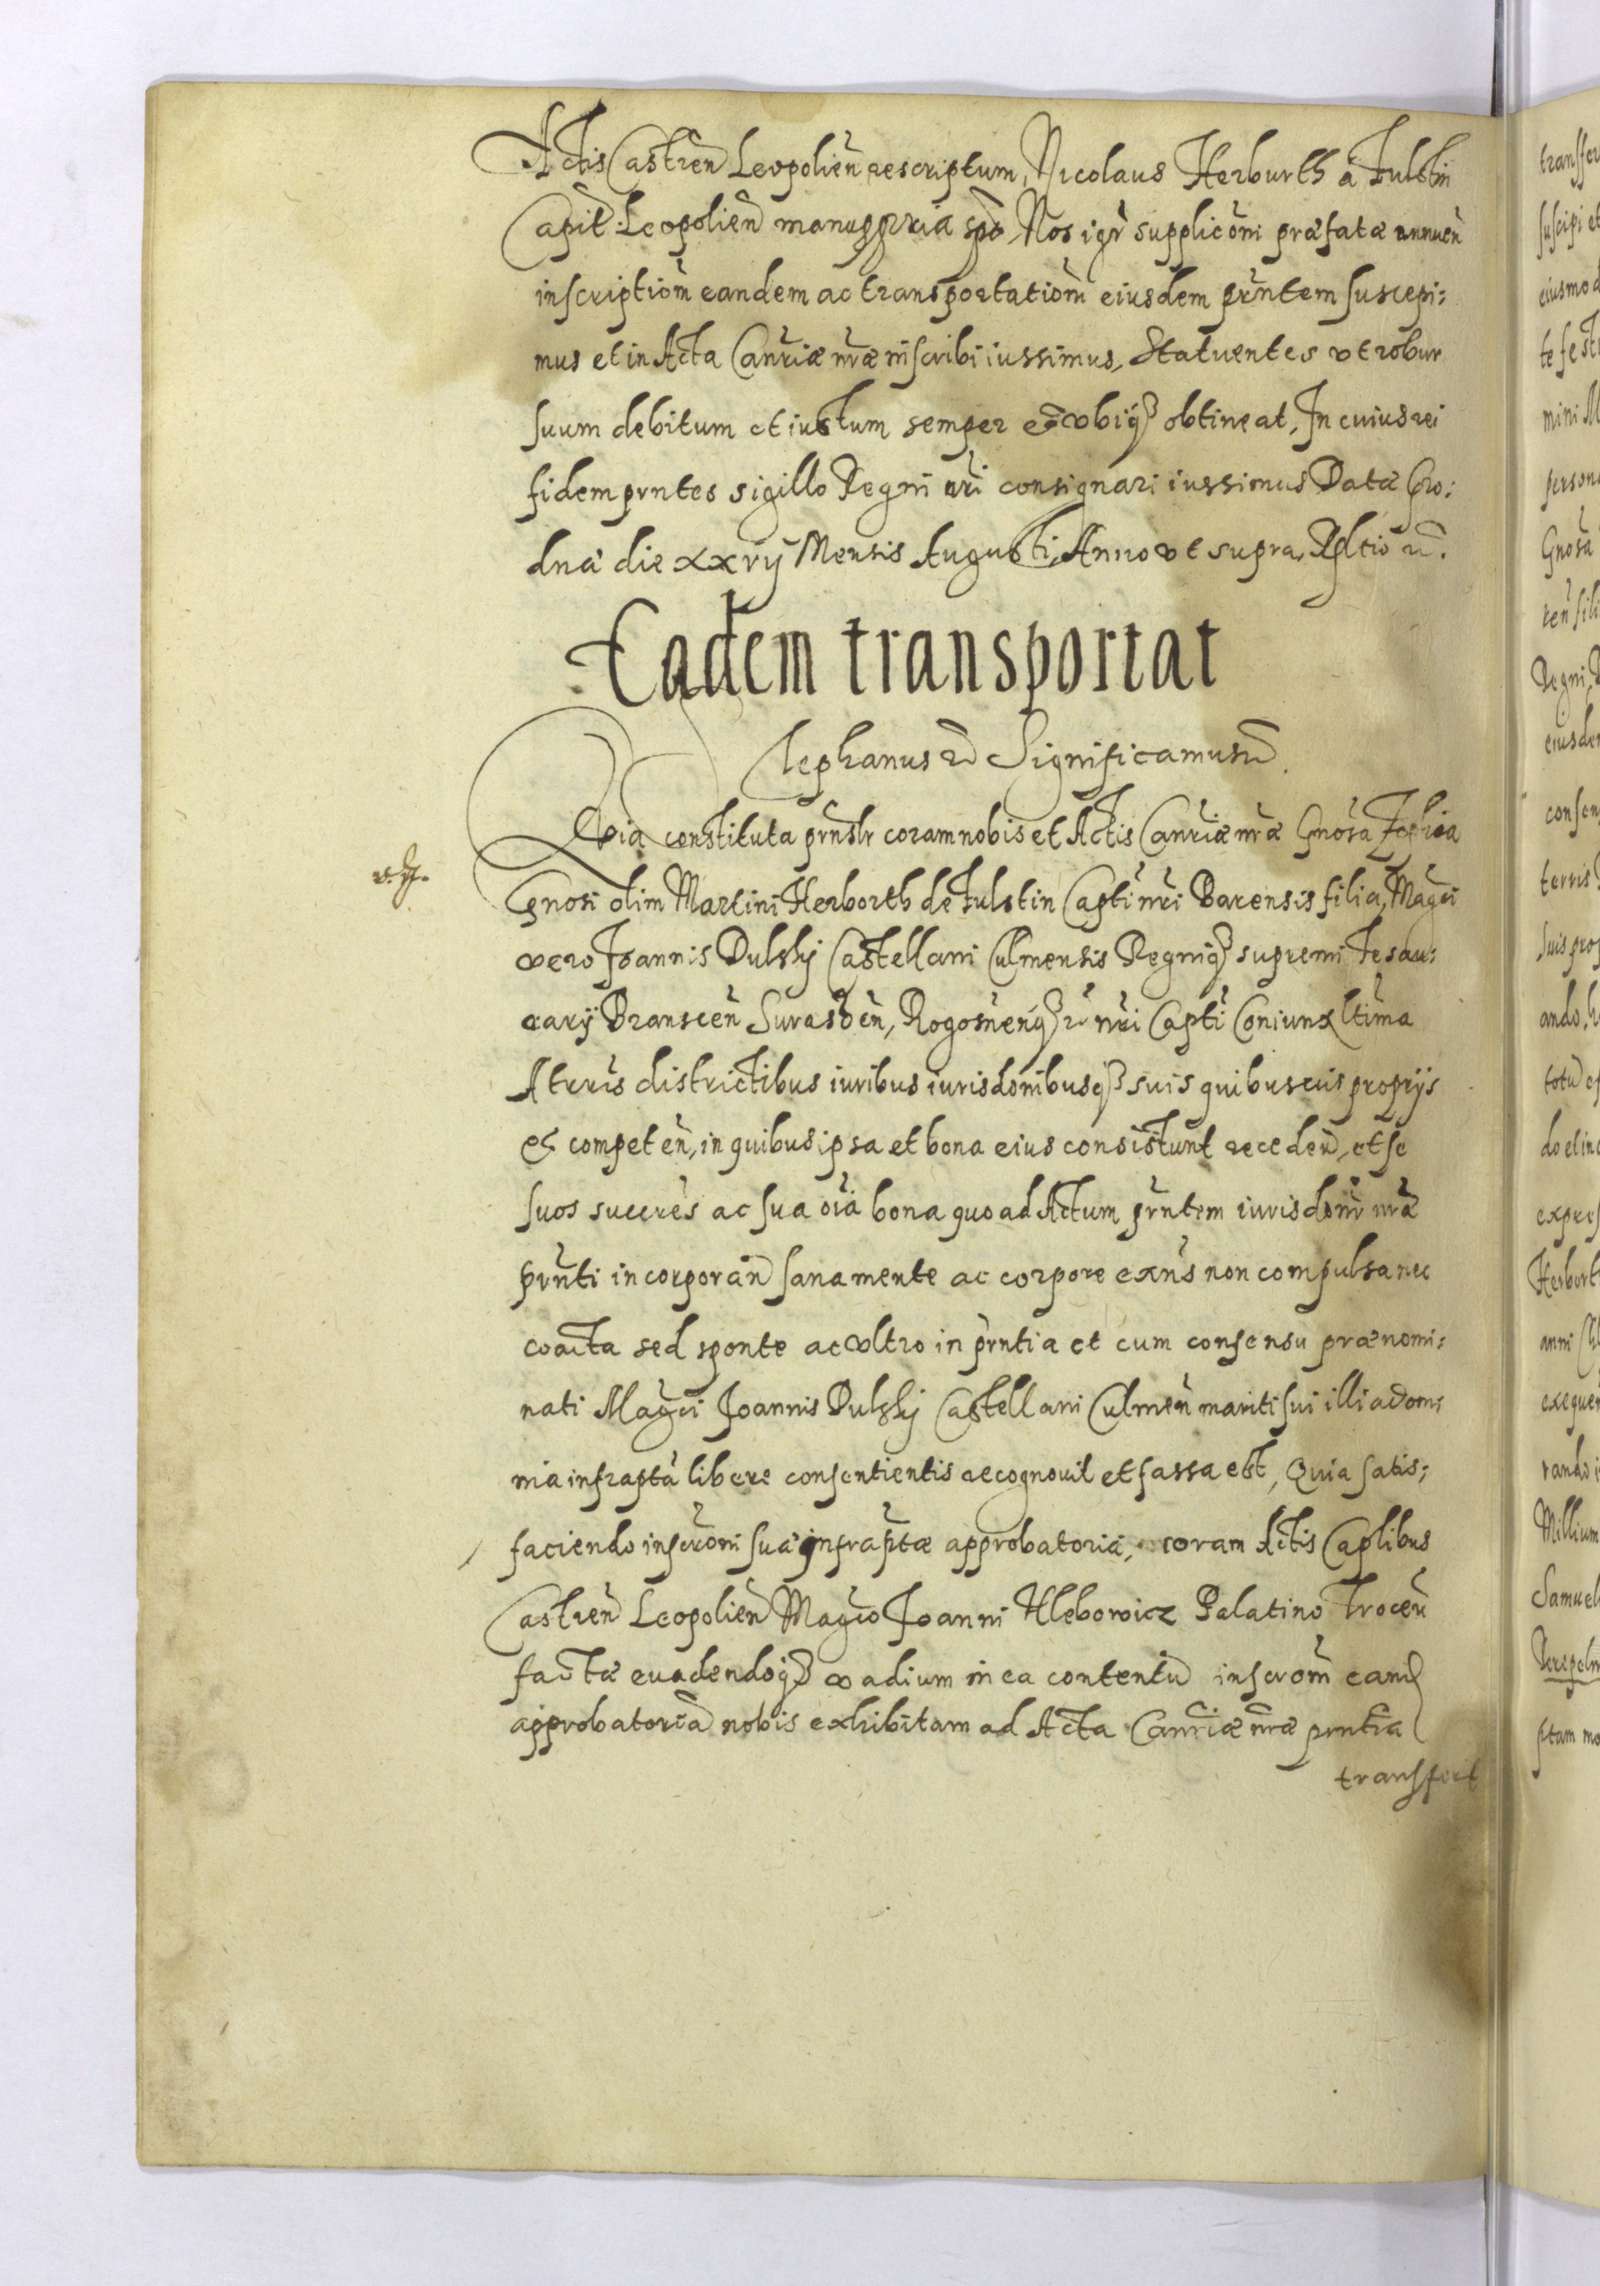 Actis Castren̄ Leopolien̄ rescriptum, Nicolaus Herburth à Fulstin
Capit: Leopolien̄ manuppria sp̄t Nos igr̄ supplicōni præfatæ annuen̄
inscriptiom̄ eandem ac transportatiom̄ eiusdem prn̄tem suscepi:
mus et in Acta Can̄riæ nr̄æ inscribi iussimus, Statuentes vt robur
suum debitum et iustum semper et vbiq3 obtineat, In cuius rei
fidem prntes sigillo Regni nr̄i consignari iussimus Datæ Gro:
dnæ die xxvij Mensis Augusti, Anno vt supra, Rltio
Eadem transportat
Stephanus Significamus
Quia constituta prn̄str coram nobis et Actis Can̄riæ nr̄æ Gnōsa Zophia
Gnosi olim Martini Herborth de Fulstin Captī nr̄i Barensis filia, Magcī
vero Joannis Dulskj Castellani Culmensis Regniq3 supremi Tesau:
rarij Branscen̄ Surascen̄, Rogosnenq3 nr̄i Captī Coniunx ltīma
A terrīs districtibus iuribus iurisdonibusq3 suis quibusuis proprijs
et competen̄, in quibus ipsa et bona eius consistunt receden̄, et se
suos succrēs ac sua oīa bona quo ad Actum prn̄tem iurisdonī nr̄æ
prn̄ti incorporan̄ sana mente ac corpore exn̄s non compulsa nec
coacta sed sponte ac vltro in prn̄tia et cum consensu prænomi:
nati Magcī Joannis Dulskj Castellani Culmen̄ mariti sui illi ad om:
nia infrapta libere consentientis recognouit et fassa est, Quia satis:
faciendo inscrōni suæ infraptæ approbatoriæ, coram Actis Caplibus
Castren̄ Leopolien̄ Magco Joanni Hlebowicz Palatino Trocen̄
factæ euadendoq3 vadium in ea contentū inscrom̄ eand
approbatoriā nobis exhibitam ad Acta Can̄riæ nr̄æ prntia
transfert